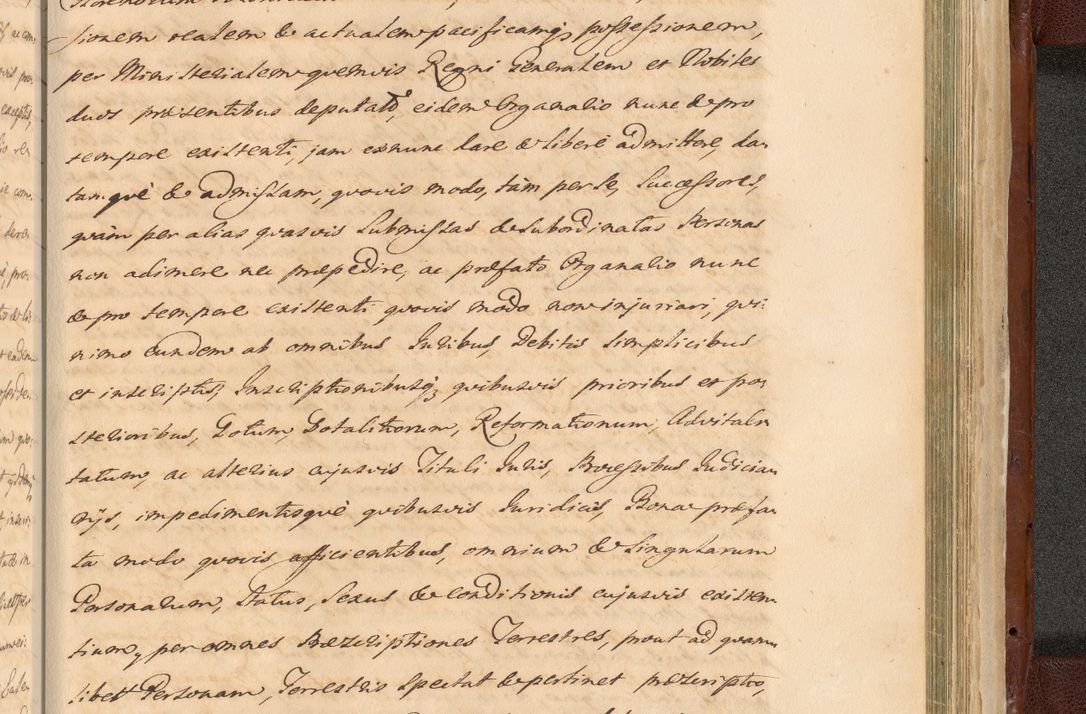 sionem realem & actualem pacificamq possessionem,
per Ministerialem quemvis Regni Generalem et Nobiles
duos præsentibus deputatos, eidem Organario nunc & pro
tempore existenti, jam exnunc dare & liberè admittere, da-
tamquè & admissam, quovis modo, tàm per se, Successores,
quàm per alias quasvis Submissas & Subordinatas Personas
non adimere nec præpedire, ac præfato Organario nunc
& pro tempore existenti quovis modo non injuriari, qui-
nimo eundem ab omnibus Juribus, Debitis simplicibus
et inscriptis, Inscriptionibusq, quibusvis prioribus et po-
sterioribus, Dotum, Dotalitiorum, Reformationum, Advitali-
tatum, ac alterius cujusvis Tituli Juris, Processibus Judicia-
rijs, impedimentisquè quibusvis Juridicis, Bona præfa-
ta modo quovis afficientibus, omnium & Singularum
Personarum, Status, Sexus & conditionis cujusvis existen-
tium, per omnes Præscriptiones Terrestres, prout ad quam-
libet Personam, Terrestris spectat & pertinet præscriptio,